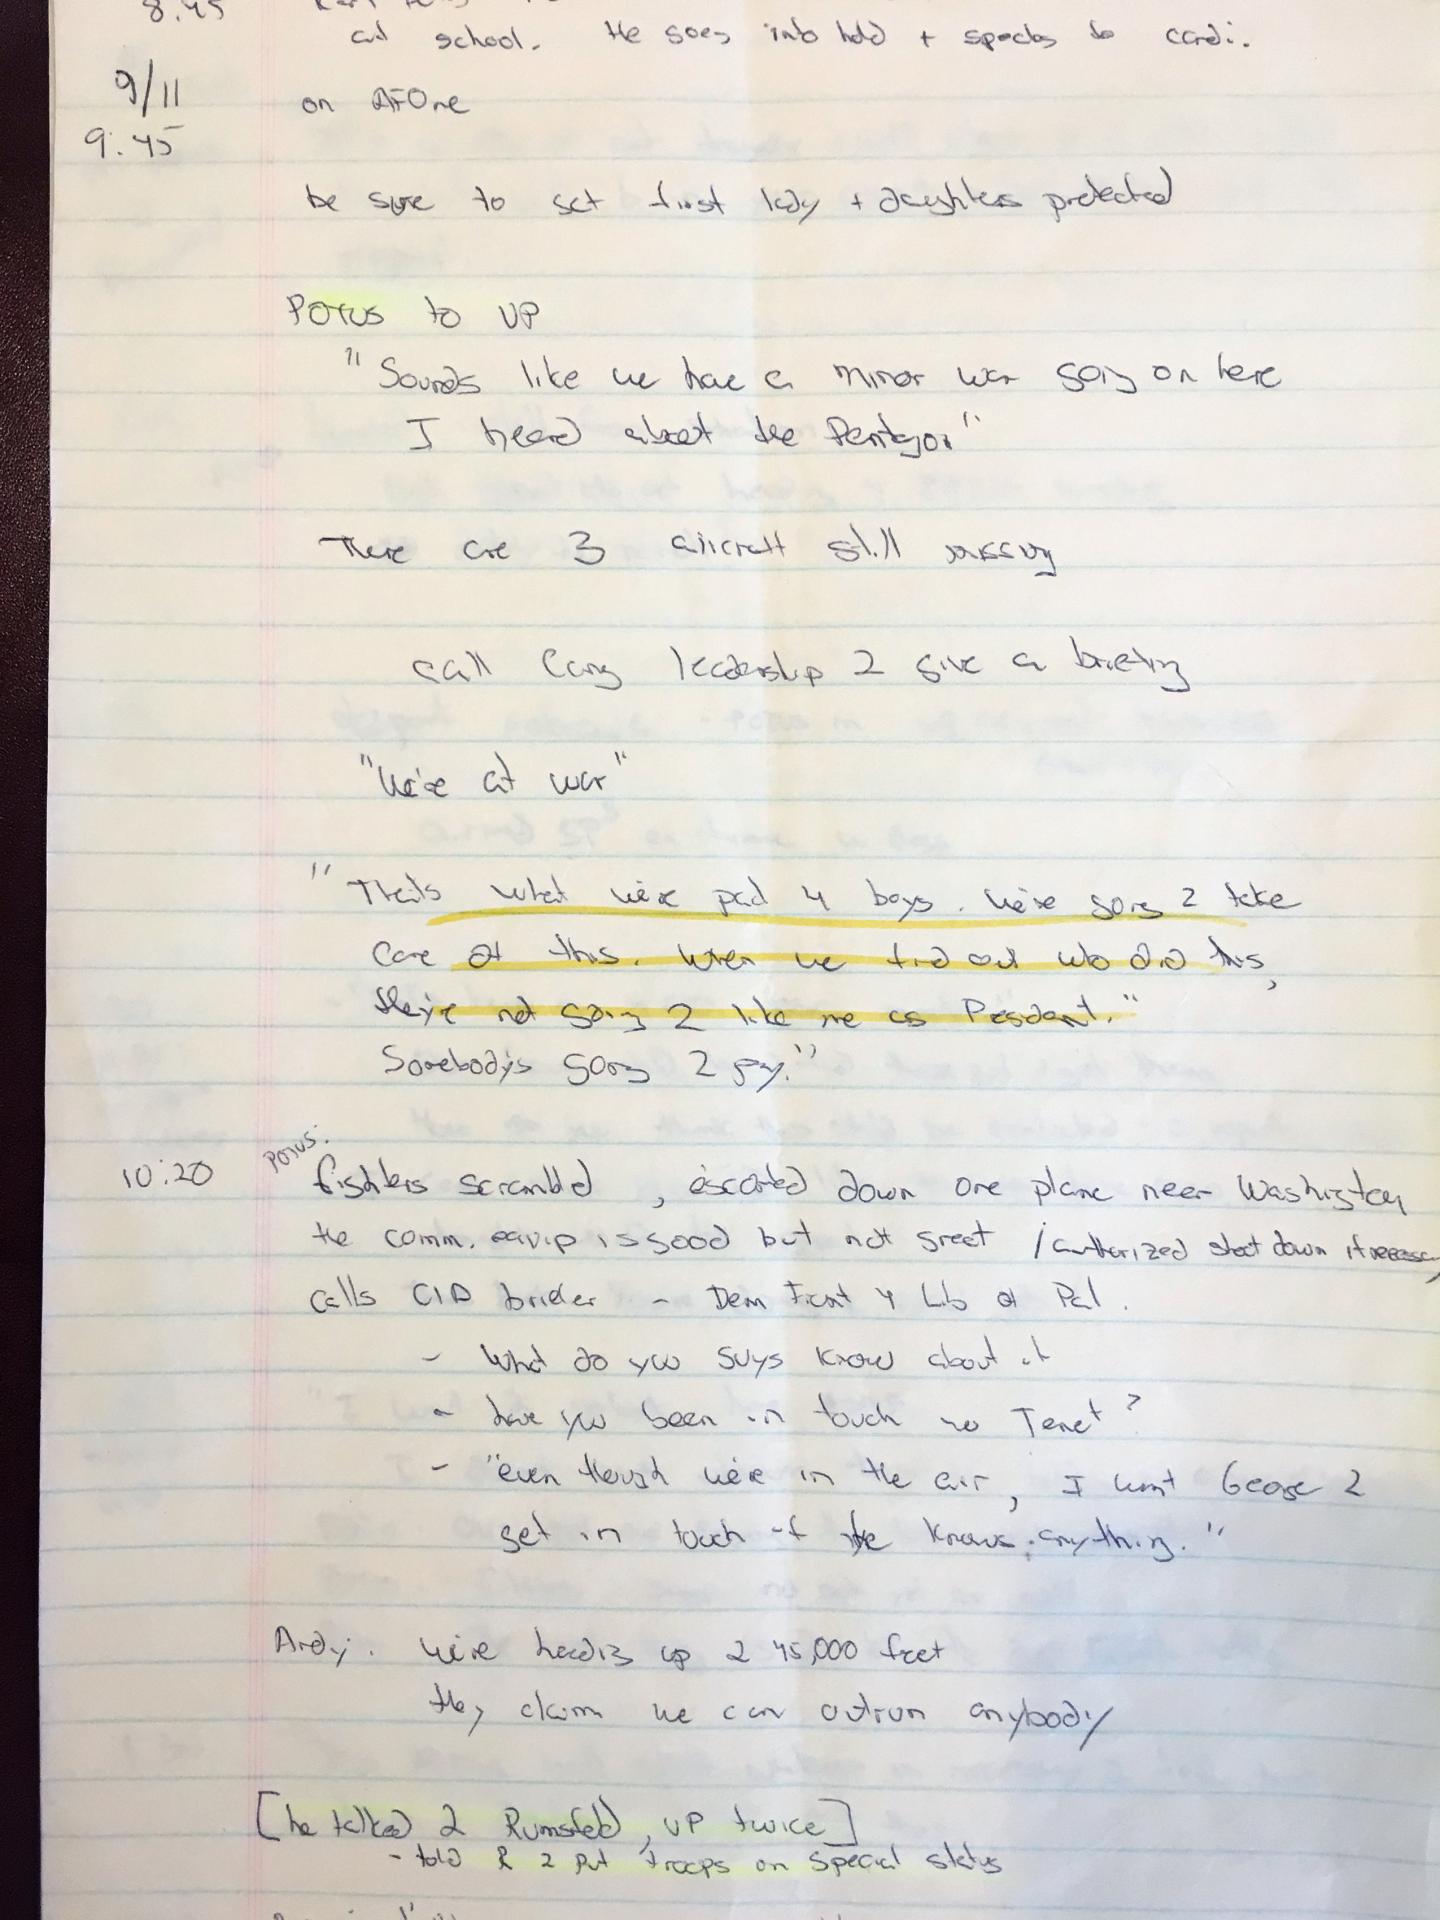 8:45
at school. He goes into hold + speaks to condi.
9/11
on AFOne
9:45
be sure to get first lady + daughters protected
POTUS to VP
"Sounds like we have a minor war going on here
I heard about the Pentagon"
There are 3 aircraft still missing
call Cong leadership 2 give a briefing
"We're at war"
"Thats what we're paid 4 boys. We're going 2 take
care of this. When we find out who did this,
they're not going 2 like me as President."
Somebody's going 2 pay."
10:20
POTUS:
fighters scrambled, escorted down one plane near Washington
the comm. equip is good but not great / authorized shoot down if necessary
calls CIA briefer - Dem Front 4 Lib of Pal.
- What do you guys know about it
- have you been in touch w Tenet?
- "even though we're in the air, I want George 2
get in touch if he knows anything."
Andy: We're heading up 2 45,000 feet
they claim we can outrun anybody
[he talked 2 Rumsfeld, VP twice]
- told R 2 put troops on special status